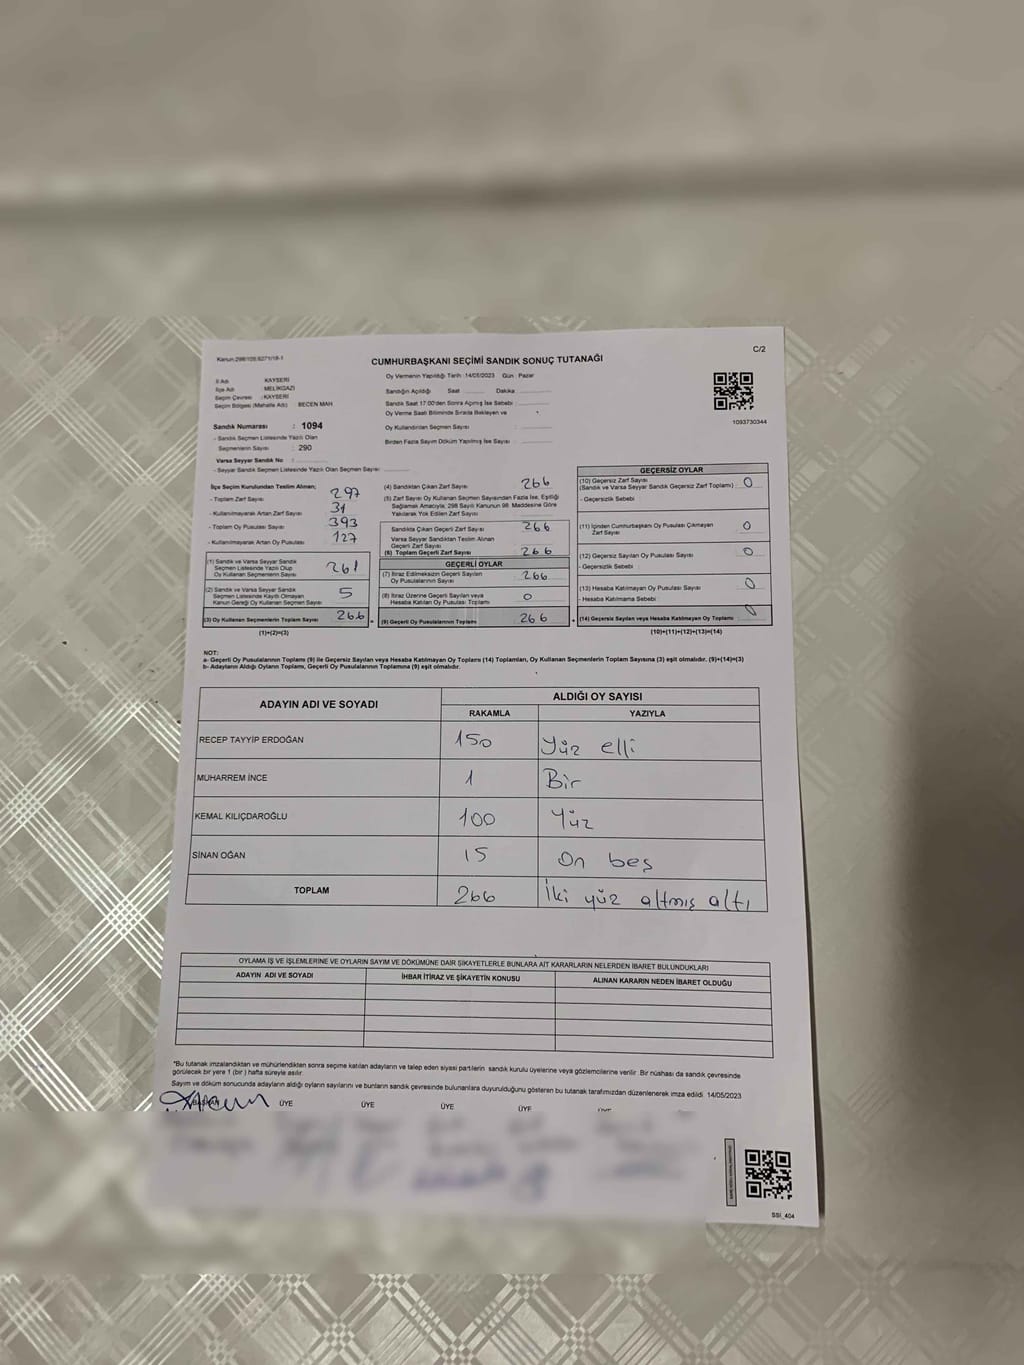 Kanun:298/109.6271/18-1
C/2
CUMHURBAŞKANI SEÇİMİ SANDIK SONUÇ TUTANAĞI
İl Adı : KAYSERİ
İlçe Adı : MELİKGAZİ
Seçim Çevresi : KAYSERİ
Seçim Bölgesi (Mahalle Adı) BECEN MAH
Sandık Numarası : 1094
- Sandık Seçmen Listesinde Yazılı Olan
Seçmenlerin Sayısı : 290
Varsa Seyyar Sandık No :
- Seyyar Sandık Seçmen Listesinde Yazılı Olan Seçmen Sayısı
Oy Vermenin Yapıldığı Tarih : 14/05/2023 Gün : Pazar
Sandığın Açıldığı Saat Dakika
Sandık Saat 17:00'den Sonra Açılmış İse Sebebi :
Oy Verme Saati Bitiminde Sırada Bekleyen ve
Oy Kullandırılan Seçmen Sayısı :
Birden Fazla Sayım Döküm Yapılmış İse Sayısı :
1093730344
İlçe Seçim Kurulundan Teslim Alınan;
- Toplam Zarf Sayısı 297
- Kullanılmayarak Artan Zarf Sayısı 31
- Toplam Oy Pusulası Sayısı 393
- Kullanılmayarak Artan Oy Pusulası 127
(1) Sandık ve Varsa Seyyar Sandık
Seçmen Listesinde Yazılı Olup
Oy Kullanan Seçmenlerin Sayısı 261
(2) Sandık ve Varsa Seyyar Sandık
Seçmen Listesinde Kayıtlı Olmayan
Kanun Gereği Oy Kullanan Seçmen Sayısı 5
(3) Oy Kullanan Seçmenlerin Toplam Sayısı 266
(1)+(2)=(3)
(4) Sandıktan Çıkan Zarf Sayısı 266
(5) Zarf Sayısı Oy Kullanan Seçmen Sayısından Fazla İse, Eşitliği
Sağlamak Amacıyla, 298 Sayılı Kanunun 98. Maddesine Göre
Yakılarak Yok Edilen Zarf Sayısı
Sandıkta Çıkan Geçerli Zarf Sayısı 266
Varsa Seyyar Sandıktan Teslim Alınan
Geçerli Zarf Sayısı
(6) Toplam Geçerli Zarf Sayısı 266
GEÇERLİ OYLAR
(7) İtiraz Edilmeksizin Geçerli Sayılan
Oy Pusulalarının Sayısı 266
(8) İtiraz Üzerine Geçerli Sayılan veya
Hesaba Katılan Oy Pusulası Toplamı 0
(9) Geçerli Oy Pusulalarının Toplamı 266
GEÇERSİZ OYLAR
(10) Geçersiz Zarf Sayısı
(Sandık ve Varsa Seyyar Sandık Geçersiz Zarf Toplamı) 0
- Geçersizlik Sebebi
(11) İçinden Cumhurbaşkanı Oy Pusulası Çıkmayan
Zarf Sayısı 0
(12) Geçersiz Sayılan Oy Pusulası Sayısı 0
- Geçersizlik Sebebi :
(13) Hesaba Katılmayan Oy Pusulası Sayısı 0
- Hesaba Katılmama Sebebi
(14) Geçersiz Sayılan veya Hesaba Katılmayan Oy Toplamı 0
(10)+(11)+(12)+(13)=(14)
NOT:
a- Geçerli Oy Pusulalarının Toplamı (9) ile Geçersiz Sayılan veya Hesaba Katılmayan Oy Toplamı (14) Toplamları, Oy Kullanan Seçmenlerin Toplam Sayısına (3) eşit olmalıdır. (9)+(14)=(3)
b- Adayların Aldığı Oyların Toplamı, Geçerli Oy Pusulalarının Toplamına (9) eşit olmalıdır.
ADAYIN ADI VE SOYADI ALDIĞI OY SAYISI
RAKAMLA YAZIYLA
RECEP TAYYİP ERDOĞAN 150 Yüz elli
MUHARREM İNCE 1 Bir
KEMAL KILIÇDAROĞLU 100 Yüz
SİNAN OĞAN 15 On beş
TOPLAM 266 İki yüz altmış altı
OYLAMA İŞ VE İŞLEMLERİNE VE OYLARIN SAYIM VE DÖKÜMÜNE DAİR ŞİKAYETLERLE BUNLARA AİT KARARLARIN NELERDEN İBARET BULUNDUKLARI
ADAYIN ADI VE SOYADI İHBAR İTİRAZ VE ŞİKAYETİN KONUSU ALINAN KARARIN NEDEN İBARET OLDUĞU
*Bu tutanak imzalandıktan ve mühürlendikten sonra seçime katılan adayların ve talep eden siyasi partilerin sandık kurulu üyelerine veya gözlemcilerine verilir. Bir nüshası da sandık çevresinde
görülecek bir yere 1 (bir) hafta süreyle asılır.
Sayım ve döküm sonucunda adayların aldığı oyların sayılarını ve bunların sandık çevresinde bulunanlara duyurulduğunu gösteren bu tutanak tarafımızdan düzenlenerek imza edildi. 14/05/2023
BAŞKAN ÜYE ÜYE ÜYE ÜYE
SSİ_404